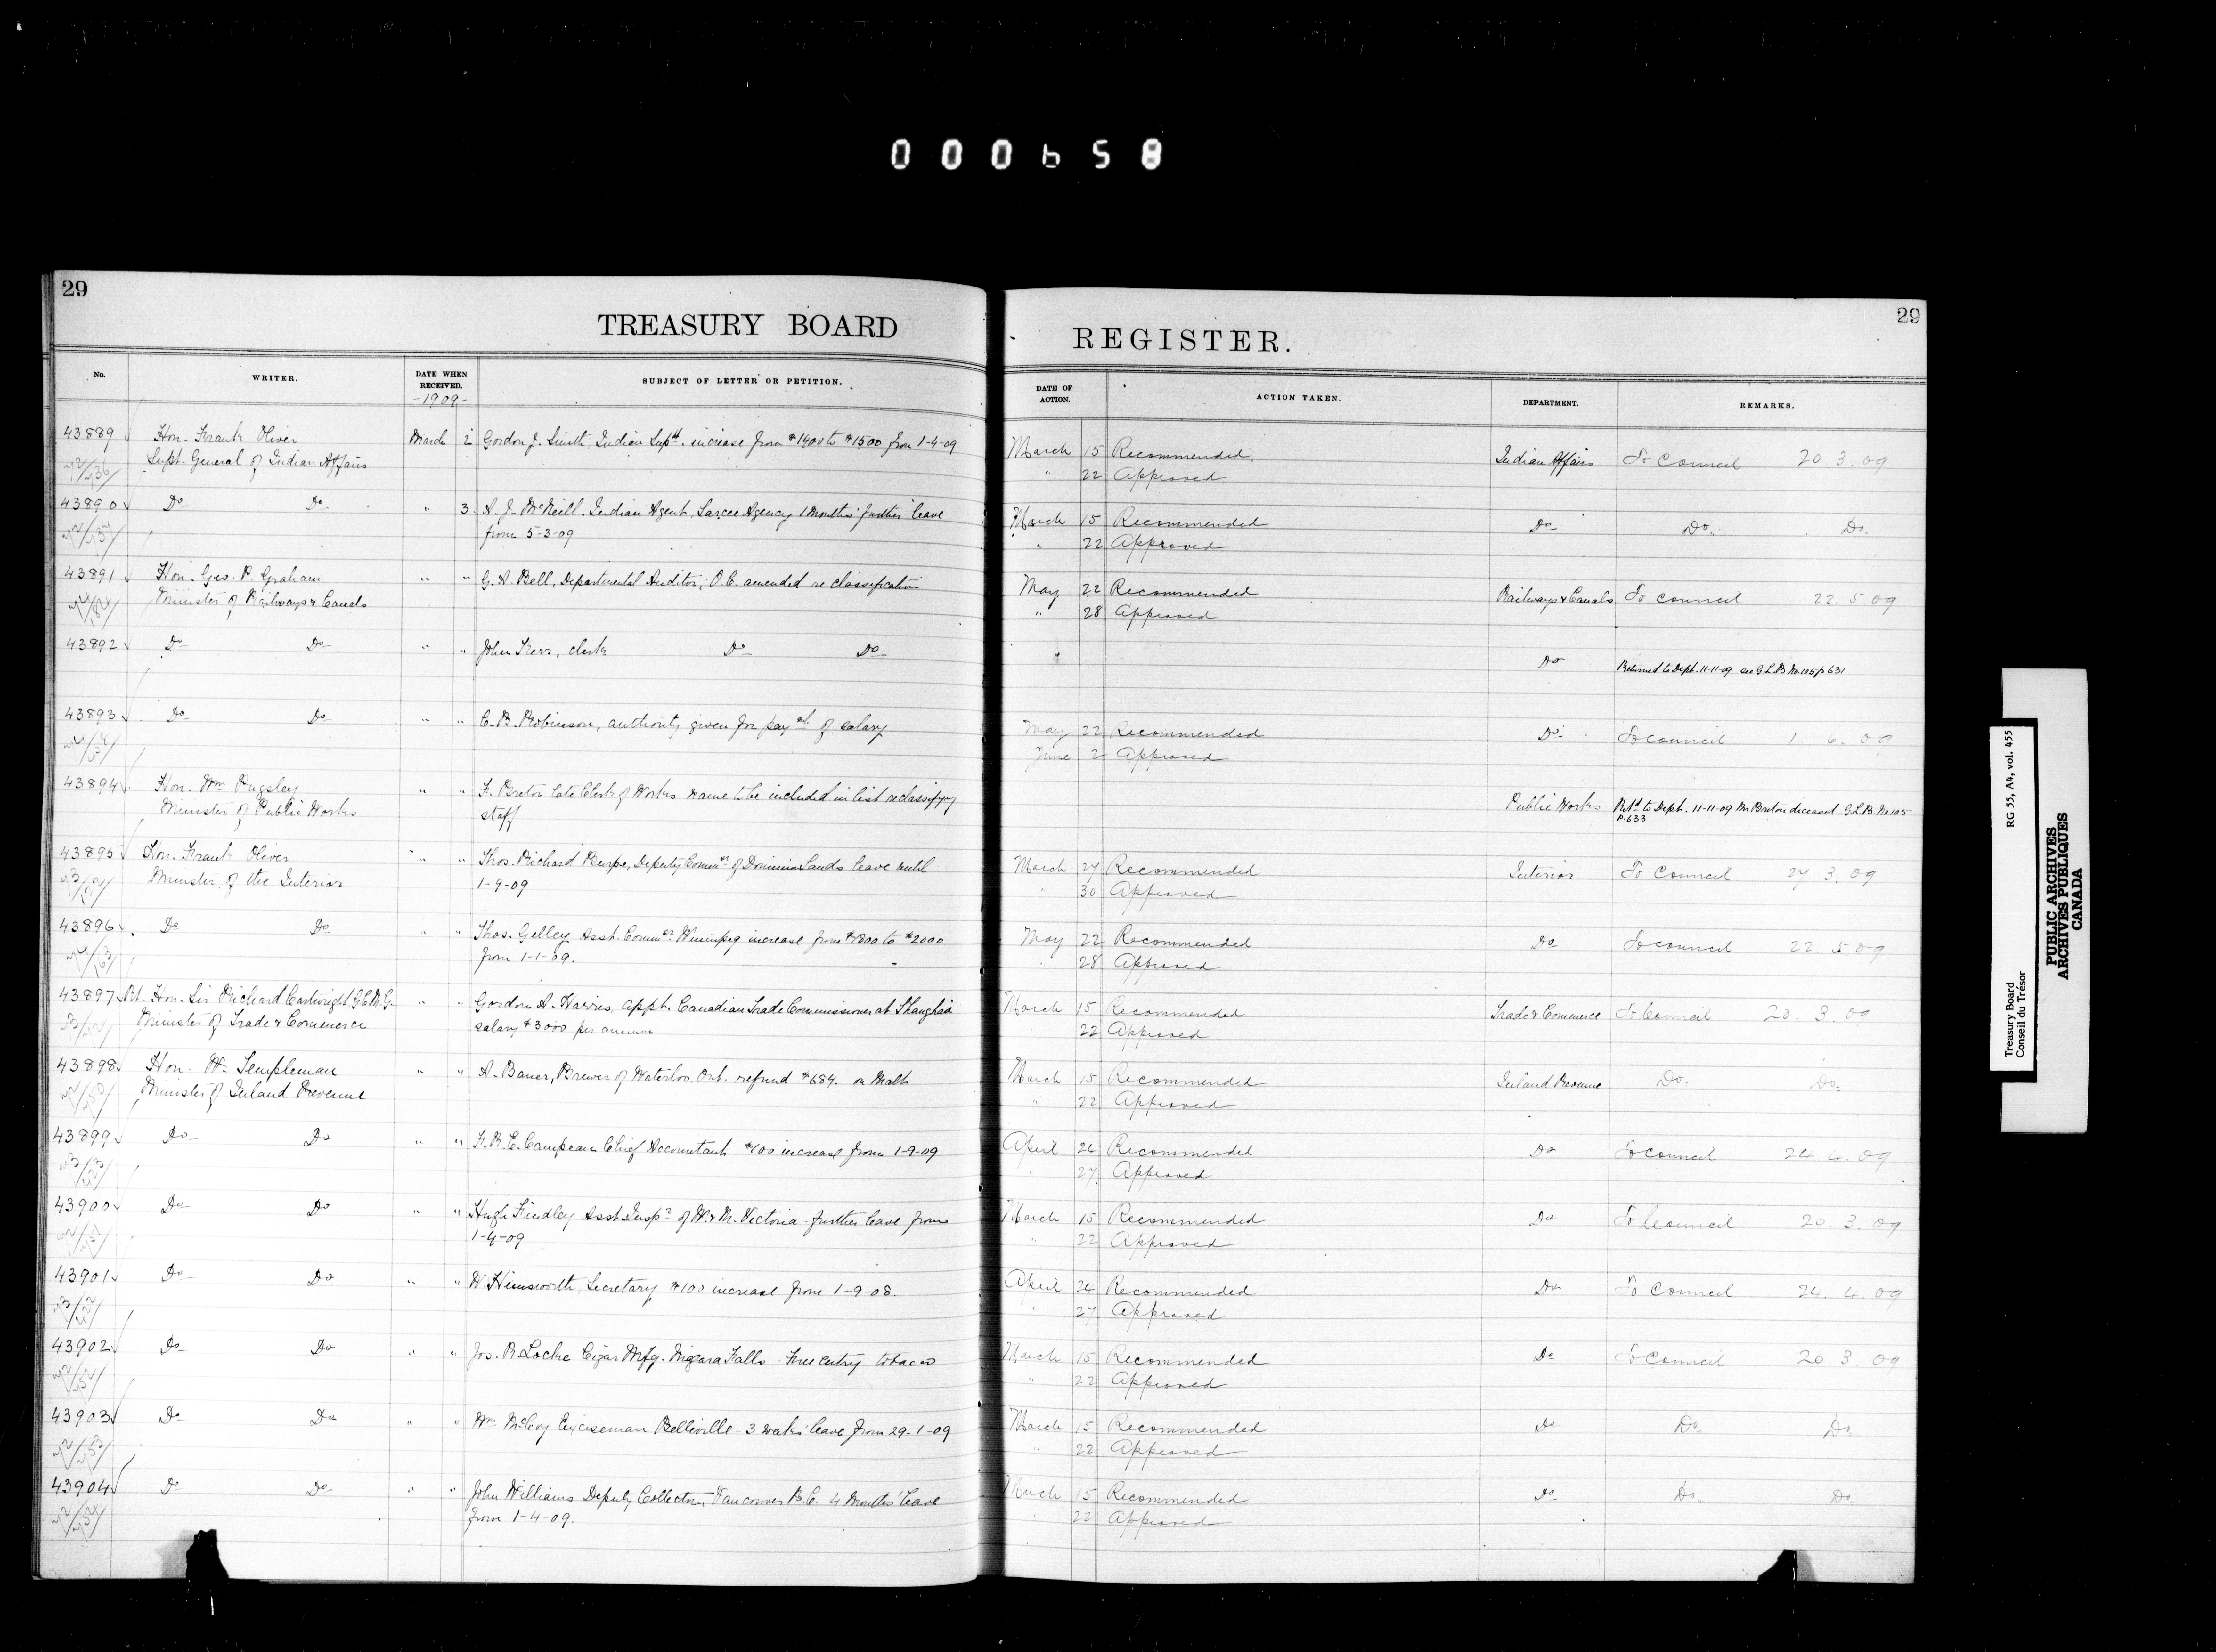 000658
29
TREASURY BOARD
REGISTER.
29
No. WRITER. DATE WHEN RECEIVED. SUBJECT OF LETTER OR PETITION. DATE OF ACTION. ACTION TAKEN. DEPARTMENT. REMARKS.
-1909-
43889 Hon. Frank Oliver March 2 Gordon J. Smith, Indian Supt. increase from $1400 to $1500 from 1-4-09 March 15 Recommended. Indian Affairs To Council 20.3.09
Supt. General of Indian Affairs " 22 Approved
43890 Do Do " 3 A. J. McNeill. Indian Agent, Sarcee Agency 1 Months' further leave March 15 Recommended Do Do. Do.
from 5-3-09 " 22 Approved
43891 Hon. Geo. P. Graham " " G. A. Bell, Departmental Auditor, O.C. amended re classification May 22 Recommended Railways & Canals To Council 22 5 09
Minister of Railways & Canals " 28 Approved
43892 Do Do " " John Kerr, clerk Do Do Do Returned to Dept. 11-11-09 see G.L.B. No.105 p 631
43893 Do Do " " C. B. Robinson, authority given for paymt. of salary May 22 Recommended Do To council 1 6. 09
June 2 Approved
43894 Hon. Wm Pugsley " " F. Breton late Clerk of Works name to be included in list reclassifying Public Works Retd to Dept. 11-11-09 Mr Breton deceased G.L.B. No 105
Minister of Public Works staff P.633
43895 Hon. Frank Oliver " " Thos. Richard Burpe, Deputy Commr of Dominion Lands leave until March 27 Recommended Interior To Council 27 3. 09
Minister of the Interior 1-9-09 " 30 Approved
43896 Do Do " " Thos. Gelley Asst. Commr Winnipeg increase from $1800 to $2000 May 22 Recommended Do To council 22. 5 09
from 1-1-09. " 28 Approved
43897 Rt. Hon. Sir Richard Cartwright G.C.M.G. " " Gordon A. Harris, appt. Canadian Trade Commissioner at Shanghai March 15 Recommended Trade & Commerce To Council 20. 3. 09
Minister of Trade & Commerce salary $3000 per annum 22 Approved
43898 Hon. W. Templeman " " A. Bauer, Brewer of Waterloo Ont. refund $684. on Malt March 15 Recommended Inland Revenue Do. Do.
Minister of Inland Revenue " 22 Approved
43899 Do Do " " F. R. E. Campeau Chief Accountant $100 increase from 1-9-09 April 24 Recommended Do To council 24 4. 09
" 27 Approved
43900 Do Do " " Hugh Findley Asst. Inspr of W. & M. Victoria - further leave from March 15 Recommended Do To Council 20 3. 09
1-4-09 " 22 Approved
43901 Do Do " " W. Himsworth, Secretary $100 increase from 1-9-08. April 24 Recommended Do To Council 24. 4. 09
" 27 Approved
43902 Do Do " " Jos. R. Locke Cigar Mfg. Niagara Falls - Free entry tobacco March 15 Recommended Do To Council 20 3. 09
" 22 Approved
43903 Do Do " " Wm. McCoy Exciseman Belleville - 3 weeks' leave from 29-1-09 March 15 Recommended Do Do. Do.
" 22 Approved
43904 Do Do " " John Williams Deputy Collector, Vancouver B.C. 4 Months' leave March 15 Recommended Do Do. Do.
from 1-4-09. " 22 Approved
Treasury Board RG 55, A4, vol. 455
Conseil du Trésor
PUBLIC ARCHIVES
ARCHIVES PUBLIQUES
CANADA